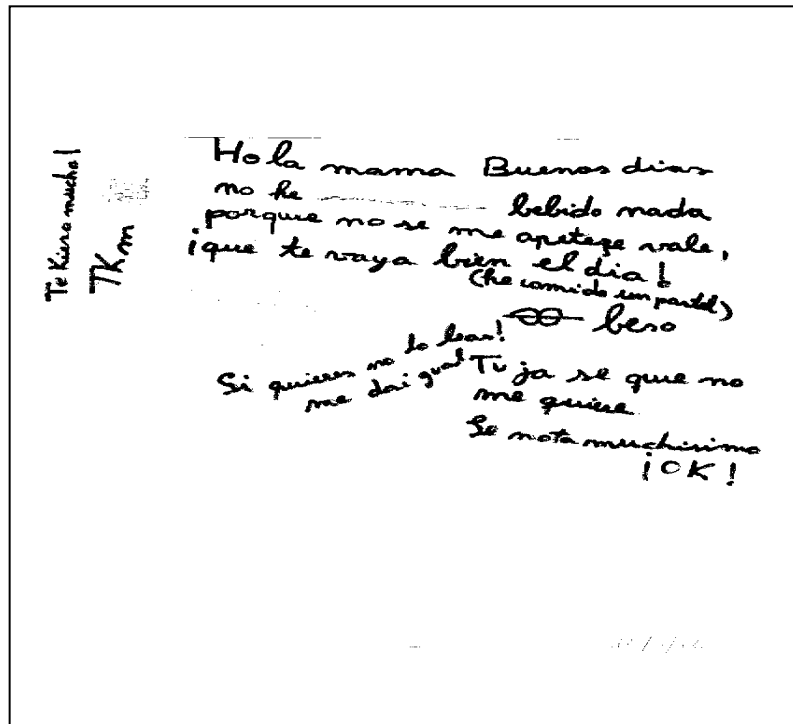 Te Kiero mucho!
TKm
Hola mama Buenos dias
no he bebido nada
porque no se me apeteze vale,
¡que te vaya bien el dia!
(he comido un pastel)
beso
Si quieres no lo leas!
me da igual
Tu ja se que no
me quiere
Se nota muchisimo
¡OK!